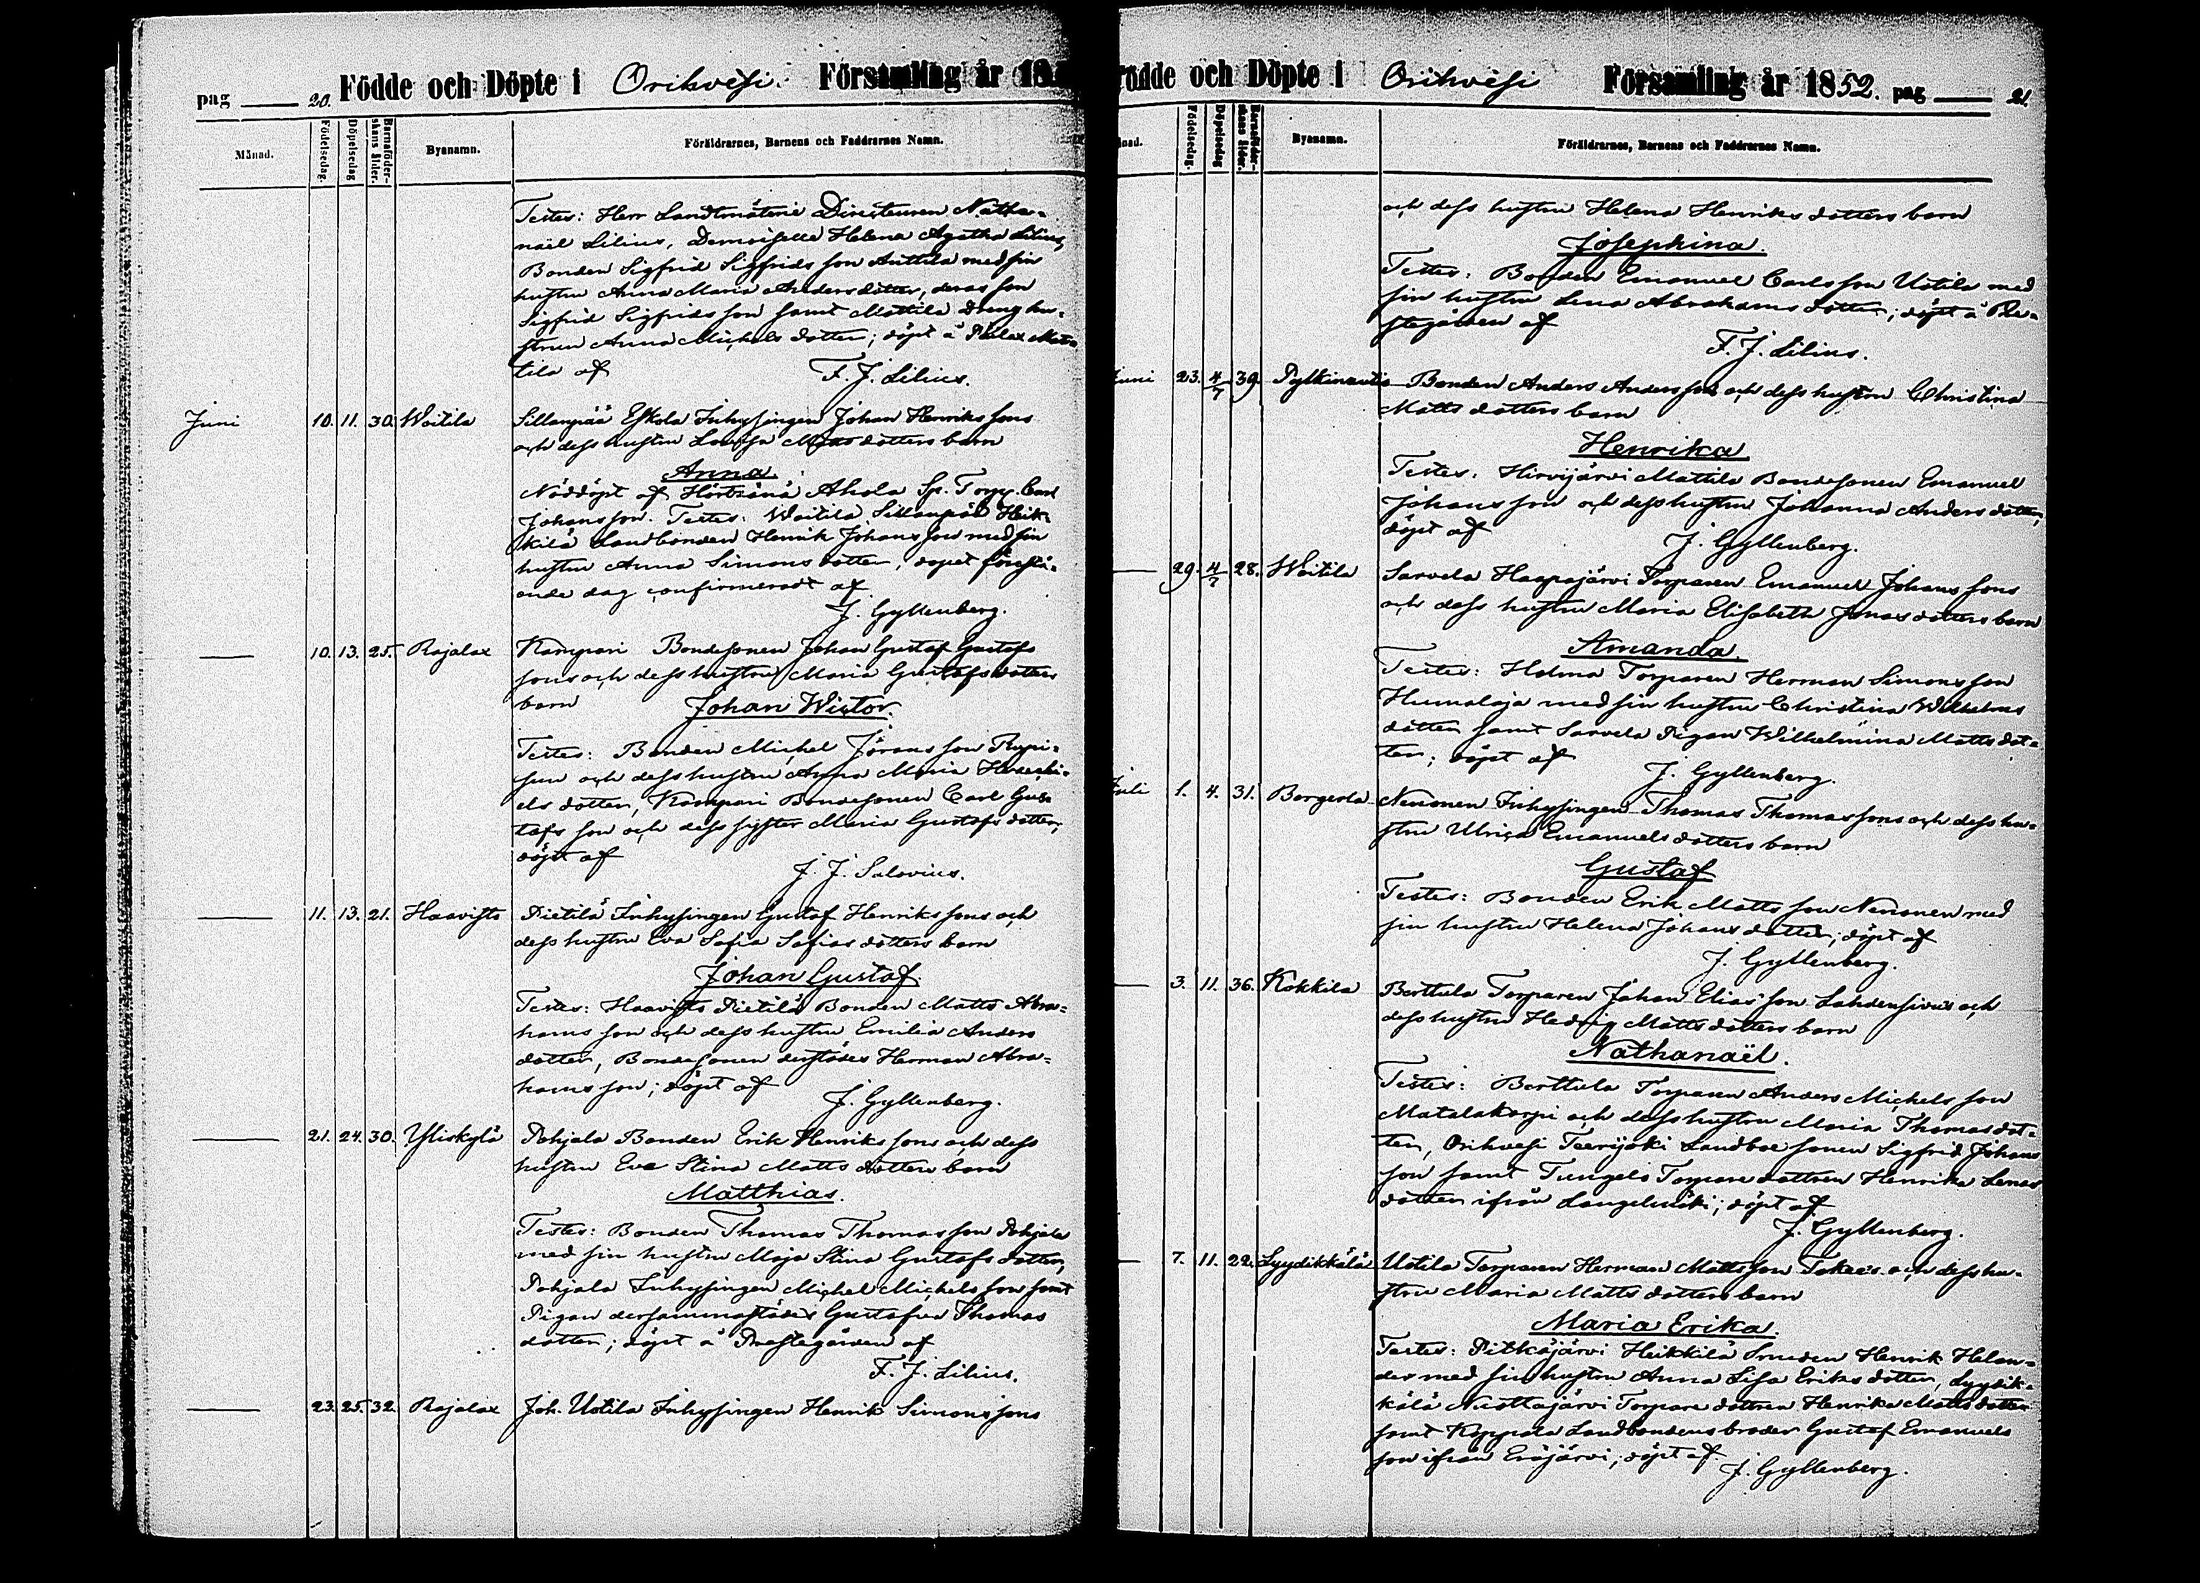 pag 20. Födde och Döpte i Orihvesi. Församling år 18
Månad. Födelsedag. Döpelsedag Barnaföderskans ålder. Byanamn. Föräldrarnes, Barnens och Faddrarnes Namn.
Testes: Herr Landtmäteri Directeuren Natha-
naël Lilius, Demoiselle Helena Agatha Lilius,
Bonden Sigfrid Sigfrids son Anttila med sin
hustru Anna Maria Anders dotter, deras son
Sigfrid Sigfrids son samt Mattila Dreng hu-
strun Anna Michels dotter; döpt å
tila af F. J. Lilius.
Juni 10. 11. 30. Woitila Sillanpää Eskola Inhysingen Johan Henriks sons
och dess hustru Lovisa Matts dotters barn
Anna.
Nöddöpt af Ahola Sp. Torp. Carl
Johansson. Testes: Woitila Sillanpää Heik-
kilä Landbonden Henrik Johans son med sin
hustru Anna Simons dotter, dopet förestå-
ende dag confirmeradt af
J. Gyllenberg.
— 10. 13. 25. Rajalax Kampari Bondesonen Johan Gustaf Gustafs
sons och dess hustru Maria Gustafs dotters
barn Johan Wictor.
Testes: Bonden Michel Jörans son
och dess hustru Anna Maria
els dotter, Kampari Bondesonen Carl Gus-
tafs son och dess syster Maria Gustafs dotter;
döpt af
J. J. Salovius.
— 11. 13. 21. Haavisto Pietilä Inhysingen Gustaf Henriks sons och
dess hustru Eva Sofia Sofias dotters barn
Johan Gustaf.
Testes: Haavisto Pietilä Bonden Matts Abra-
hams son och dess hustru Emilia Anders
dotter, Bondesonen dustädes Herman Abra-
hams son; döpt af
J. Gyllenberg.
— 21. 24. 30. Yliskylä Pohjala Bonden Erik Henriks sons och dess
hustru Eva Stina Matts dotters barn
Matthias.
Testes: Bonden Thomas Thomas son Pohjala
med sin hustru Maja Stina Gustafs dotter,
Pohjala Inhysingen Michel Michels son samt
Pigan dersammastädes Gustafva Thomas
dotter; döpt å Prestegården af
F. J. Lilius.
— 23. 25. 32. Rajalax Joh. Uotila Inhysingen Henrik Simons sons
Födde och Döpte i Orihvesi Församling år 1852. pag 21.
Månad. Födelsedag. Döpelsedag Barnaföderskans ålder. Byanamn. Föräldrarnes, Barnens och Faddrarnes Namn.
och dess hustru Helena Henriks dotters barn
Josephina.
Testes: Bonden Emanuel Carls son Uotila med
sin hustru Lena Abrahams dotter; döpt å Pre-
stegården af
F. J. Lilius.
Juni 23. 4/7 39. Bonden Anders Anders sons och dess hustru Christina
Matts dotters barn
Henrika
Testes: Hirvijärvi Mattila Bondesonen Emanuel
Johans son och dess hustru Johanna Anders dotter,
döpt af
J. Gyllenberg.
— 29. 4/7 28. Woitila Sarvela Haapajärvi Torparen Emanuel Johans sons
och dess hustru Maria Elisabeth Jonas dotters barn
Amanda.
Testes: Holma Torparen Herman Simons son
Humaloja med sin hustru Christina Wilhelms
dotter samt Sarvela Pigan Wilhelmina Matts dot-
ter; döpt af
J. Gyllenberg.
Juli 1. 4. 31. Nenonen Inhysingen Thomas Thomas sons och dess hu-
stru Ulrica Emanuels dotters barn
Gustaf
Testes: Bonden Erik Matts son Nenonen med
sin hustru Helena Johans dotter; döpt af
J. Gyllenberg.
— 3. 11. 36. Kokkila Berttula Torparen Johan Elias son Lahdensivus och
dess hustru Hedvig Matts dotters barn
Nathanaël.
Testes: Berttula Torparen Anders Michels son
Matalakorpi och dess hustru Maria Thomas dot-
ter, Orihvesi Teerijoki Landboe sonen Sigfrid Johans
son samt Torpare dottren Henrika
dotter ifrån Längelmäki; döpt af
J. Gyllenberg.
— 7. 11. 22. Lyydikkälä Uotila Torparen Herman Matts son och dess hu-
stru Maria Matts dotters barn
Maria Erika.
Testes: Pitkäjärvi Heikkilä Smeden Henrik Helan-
der med sin hustru Anna Lisa Eriks dotter, Lyydik-
kälä Torpare dottren Henrika Matts dotter
samt Koppala Landbondens broder Gustaf Emanuels
son ifrån Eräjärvi; döpt af
J. Gyllenberg.